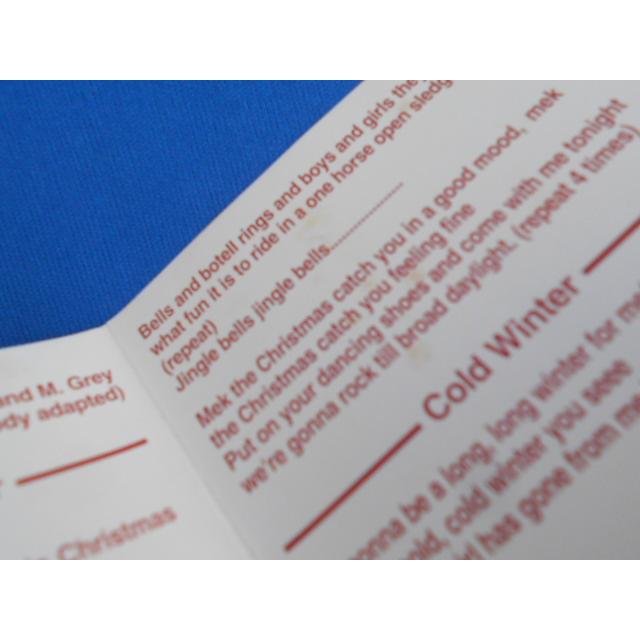 and M. Grey
adapted)
Christmas
Bells and botell rings and boys and girls
what fun it is to ride in a one horse open
(repeat)
Jingle bells jingle bells....................
Mek the Christmas catch you in a good mood, mek
the Christmas catch you feeling fine
Put on your dancing shoes and come with me tonight
we're gonna rock till broad daylight. (repeat 4 times)
Cold Winter
be a long, long winter for
cold winter you seee
has gone from me